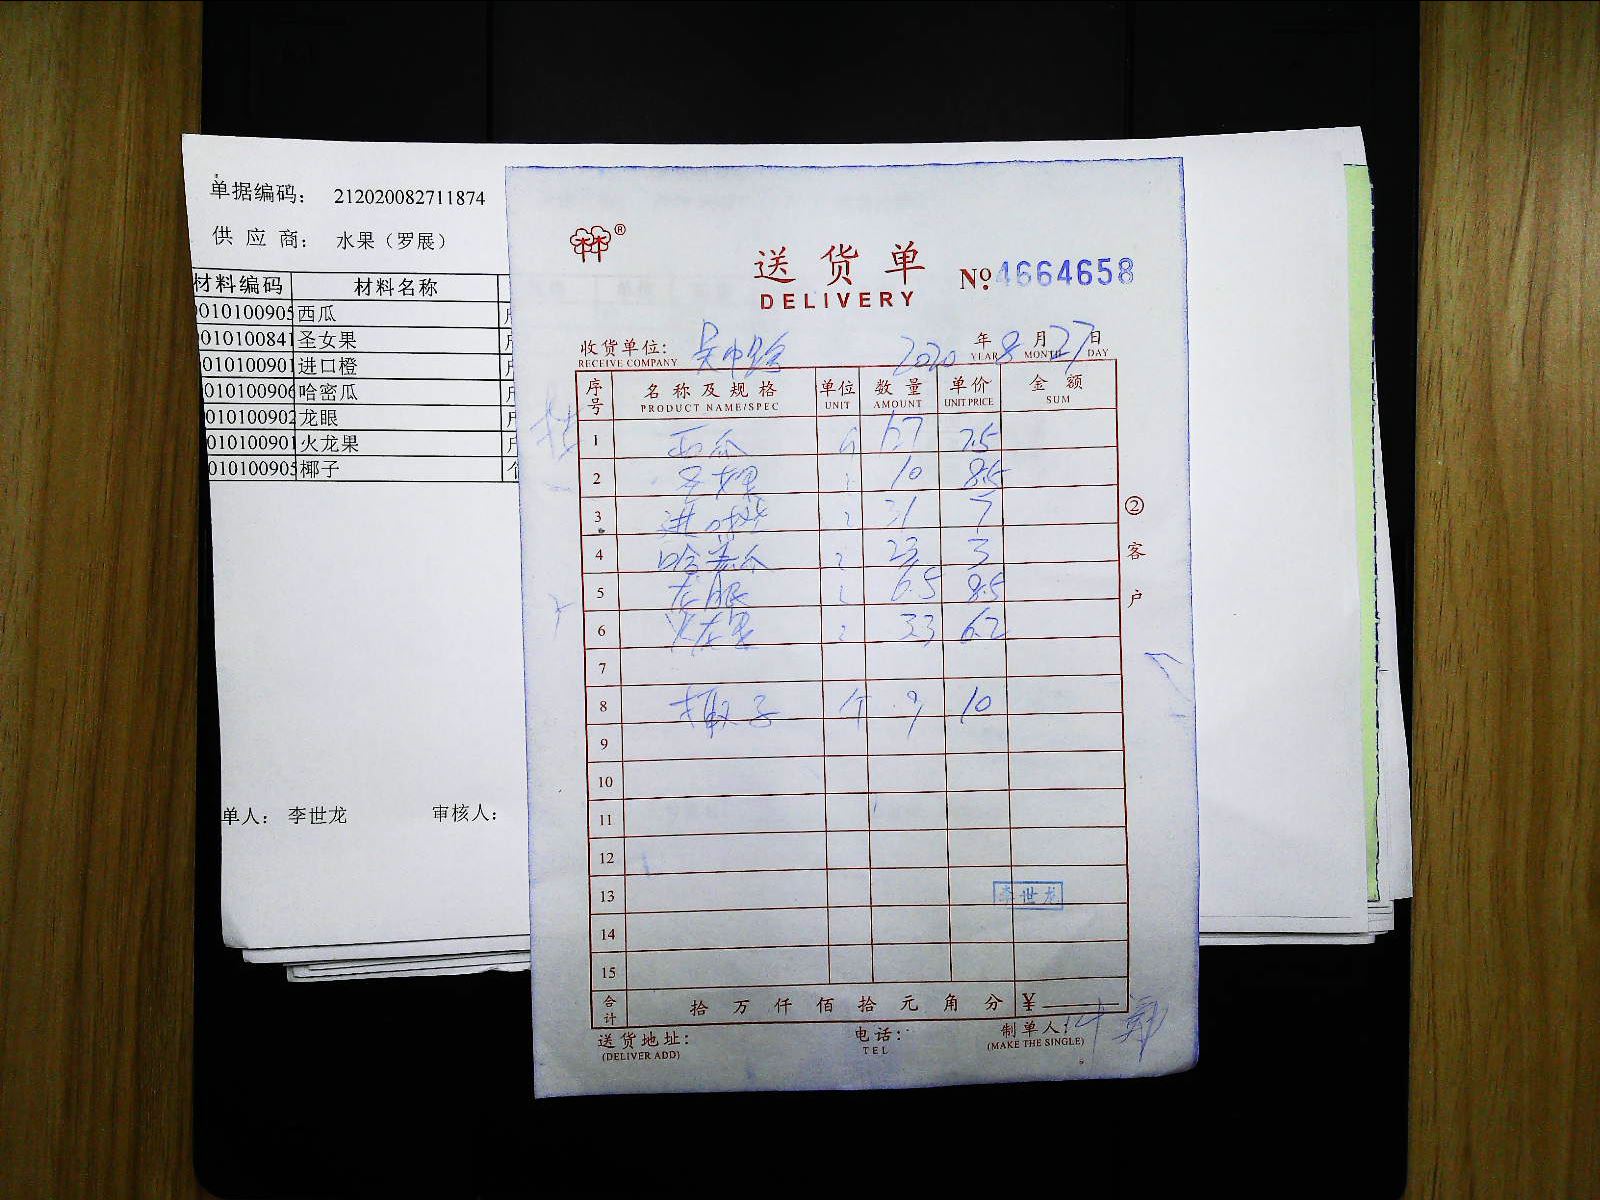 单据编码： 212020082711874
供 应 商： 水果（罗展）
材料编码 材料名称
010100905 西瓜
010100841 圣女果
010100901 进口橙
010100906 哈密瓜
010100902 龙眼
010100901 火龙果
010100905 椰子 个
单人： 李世龙 审核人：
林®
送货单
DELIVERY
№ 4664658
收货单位： 吴中路 2020 年 8 月 27 日
RECEIVE COMPANY YEAR MONTH DAY
序号 名称及规格 单位 数量 单价 金额
PRODUCT NAME/SPEC UNIT AMOUNT UNIT PRICE SUM
1 西瓜 67
2 圣女果 10 8.5
3 进口橙 31 7
4 哈密瓜 23 3
5 龙眼 6.5 8.5
6 火龙果 33 6.2
7
8 椰子 个 9 10
9
10
11
12
13 李世龙
14
15
合计 拾 万 仟 佰 拾 元 角 分 ¥
送货地址： 电话： 制单人：
(DELIVER ADD) TEL (MAKE THE SINGLE)
②客户